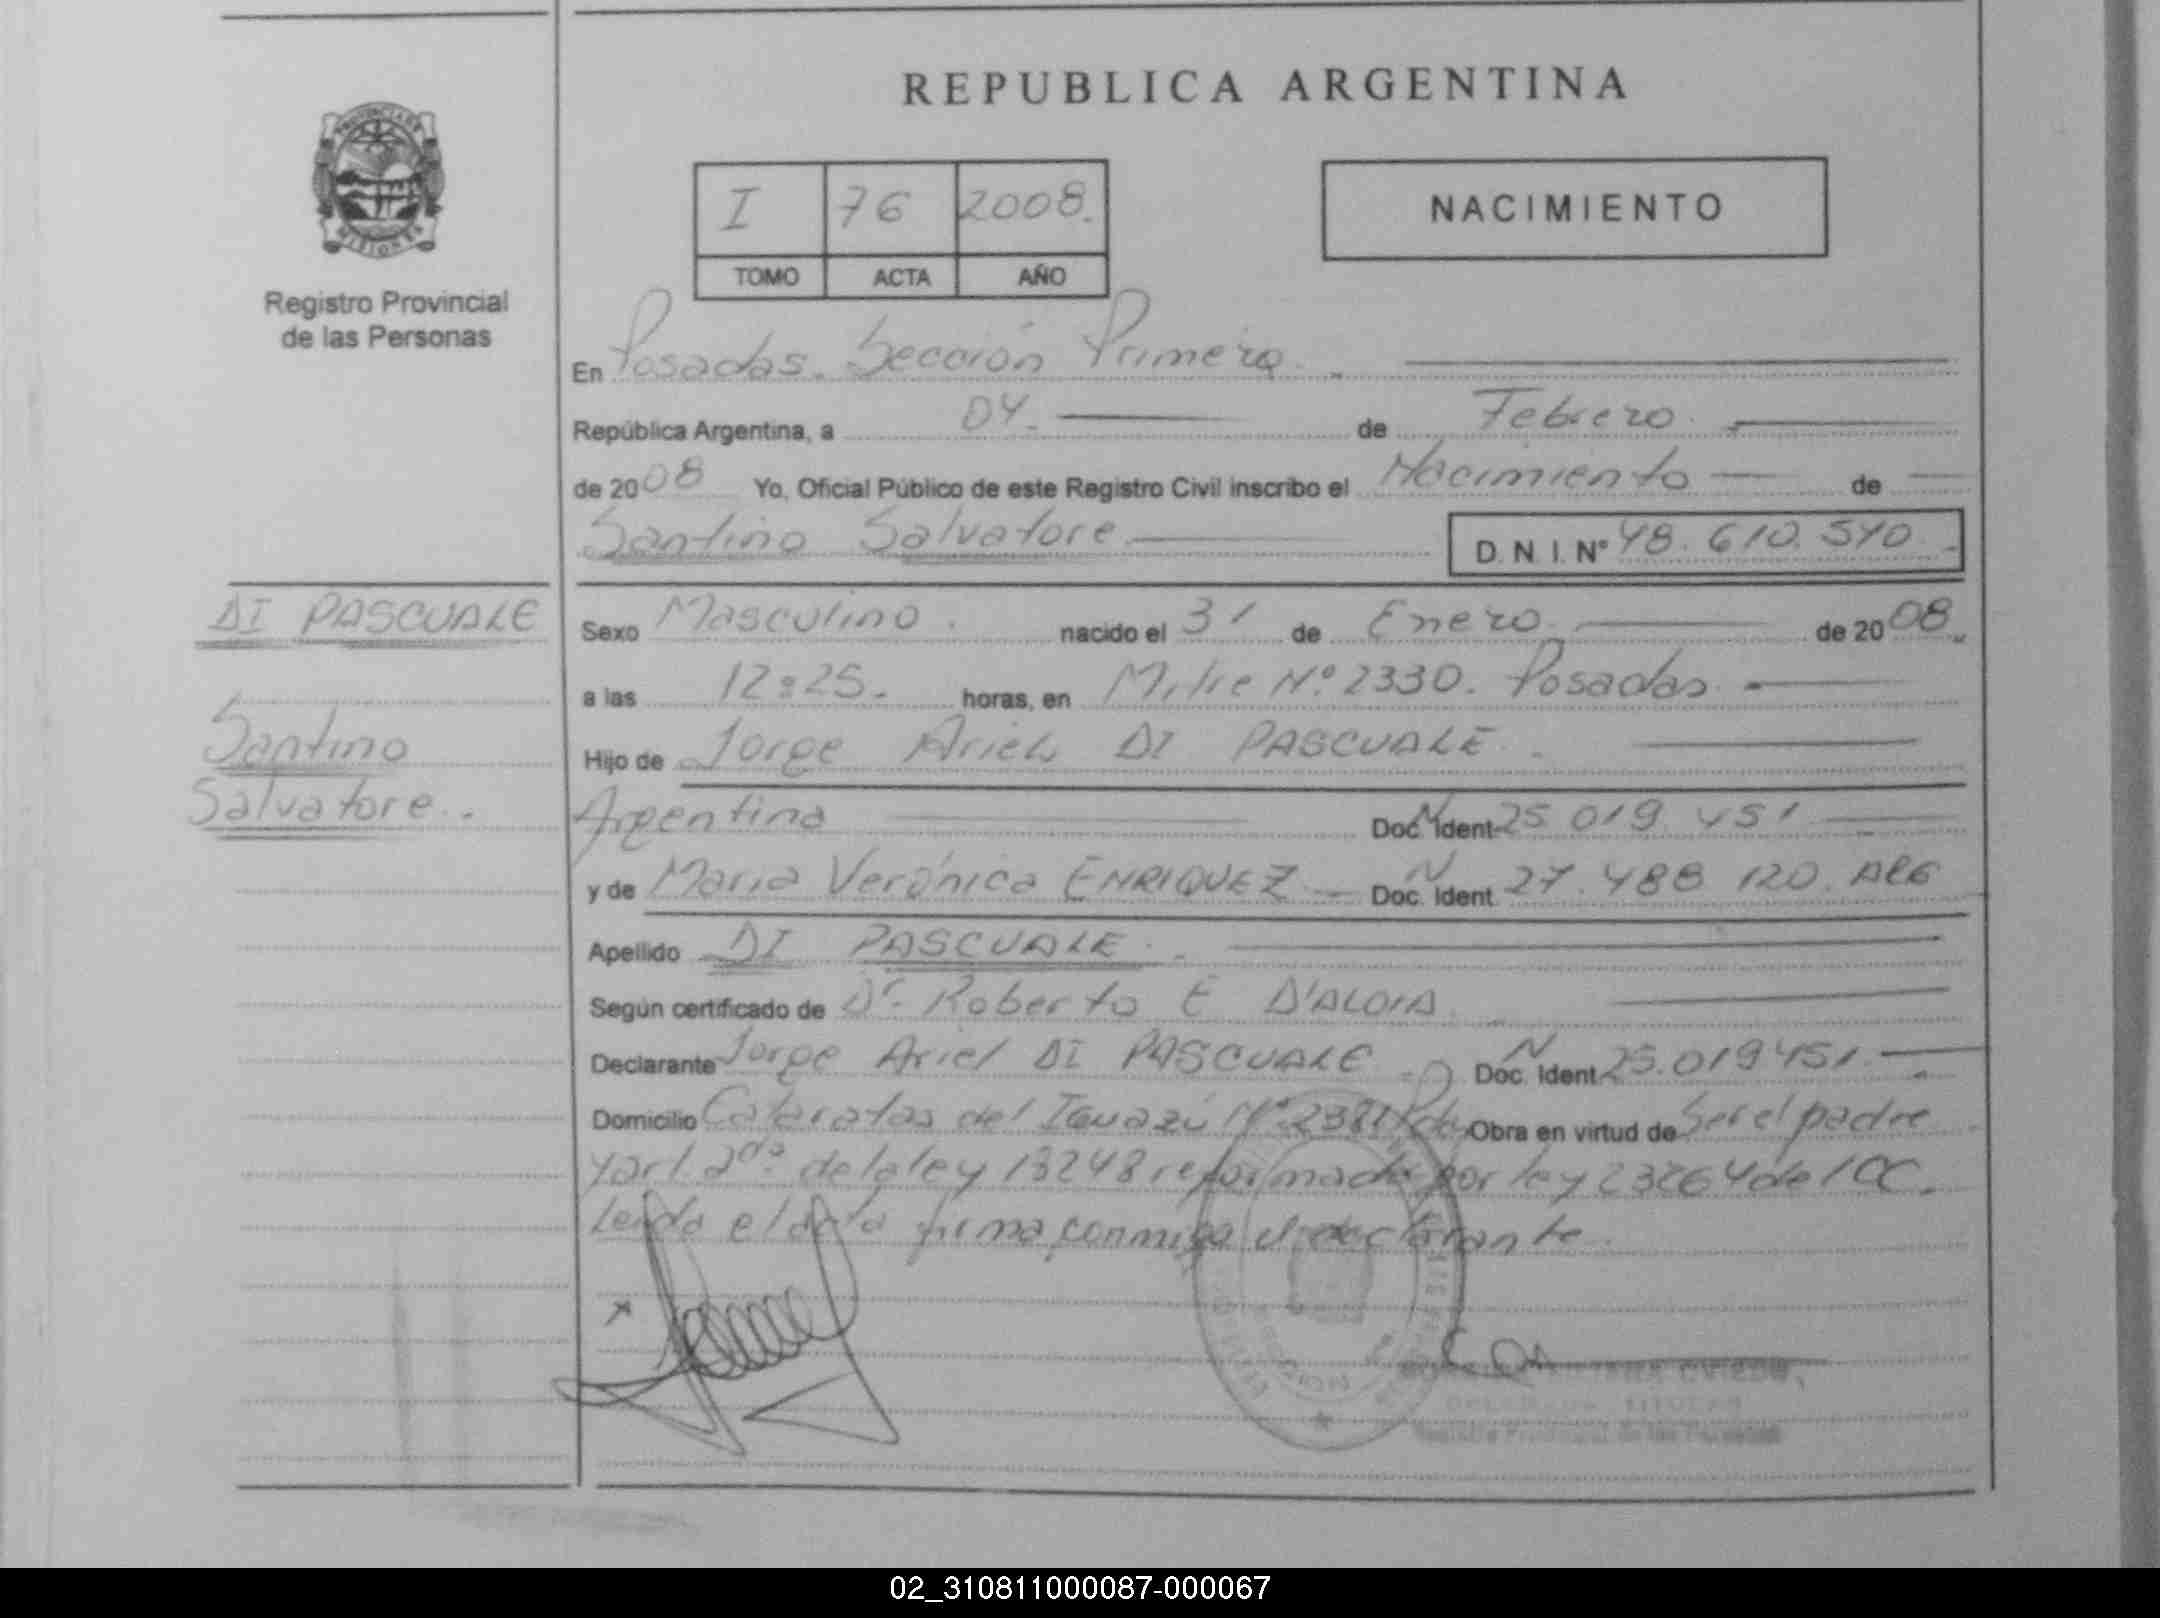 REPUBLICA ARGENTINA
PROVINCIA DE
MISIONES
Registro Provincial
de las Personas
I 76 2008.
TOMO ACTA AÑO
NACIMIENTO
En Posadas. Sección Primera.
República Argentina, a 04. de Febrero.
de 2008 Yo, Oficial Público de este Registro Civil inscribo el Nacimiento de
Santino Salvatore D. N. I. Nº 48.610.540
DI PASCUALE
Santino
Salvatore.
Sexo Masculino. nacido el 31 de Enero. de 2008.
a las 12:25. horas, en Mitre Nº 2330. Posadas.
Hijo de Jorge Ariel DI PASCUALE.
Argentina Doc. Ident N 25.019.451
y de Maria Verónica ENRIQUEZ Doc. Ident. N 27.488.120. ARG
Apellido DI PASCUALE.
Según certificado de Dr. Roberto E D'ALOIA
Declarante Jorge Ariel DI PASCUALE Doc. Ident. N 25.019451.
Domicilio Cataratas del Iguazú Nº 2381 Obra en virtud de Ser el padre
y art. 2do. de la ley 18248 reformada por ley 23264 del CC.
Leida el acta firma conmigo el declarante.
x
OVIEDO
DELEGADA TITULAR
Registro Provincial de las Personas
02_310811000087-000067